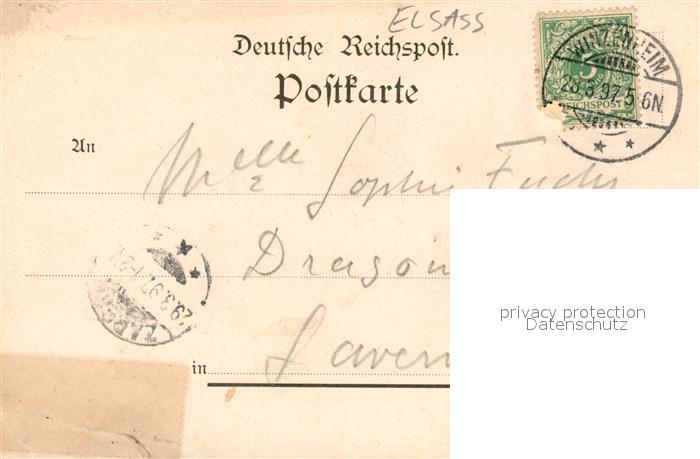 ELSASS
Deutsche Reichspost.
Postkarte
WINZENHEIM
28.3.97. 5-6N.
5
REICHSPOST
An
Melle Sophie Fuchs
Dragon
29.3.97. 1-2
ZABERN
in Savern
privacy protection
Datenschutz